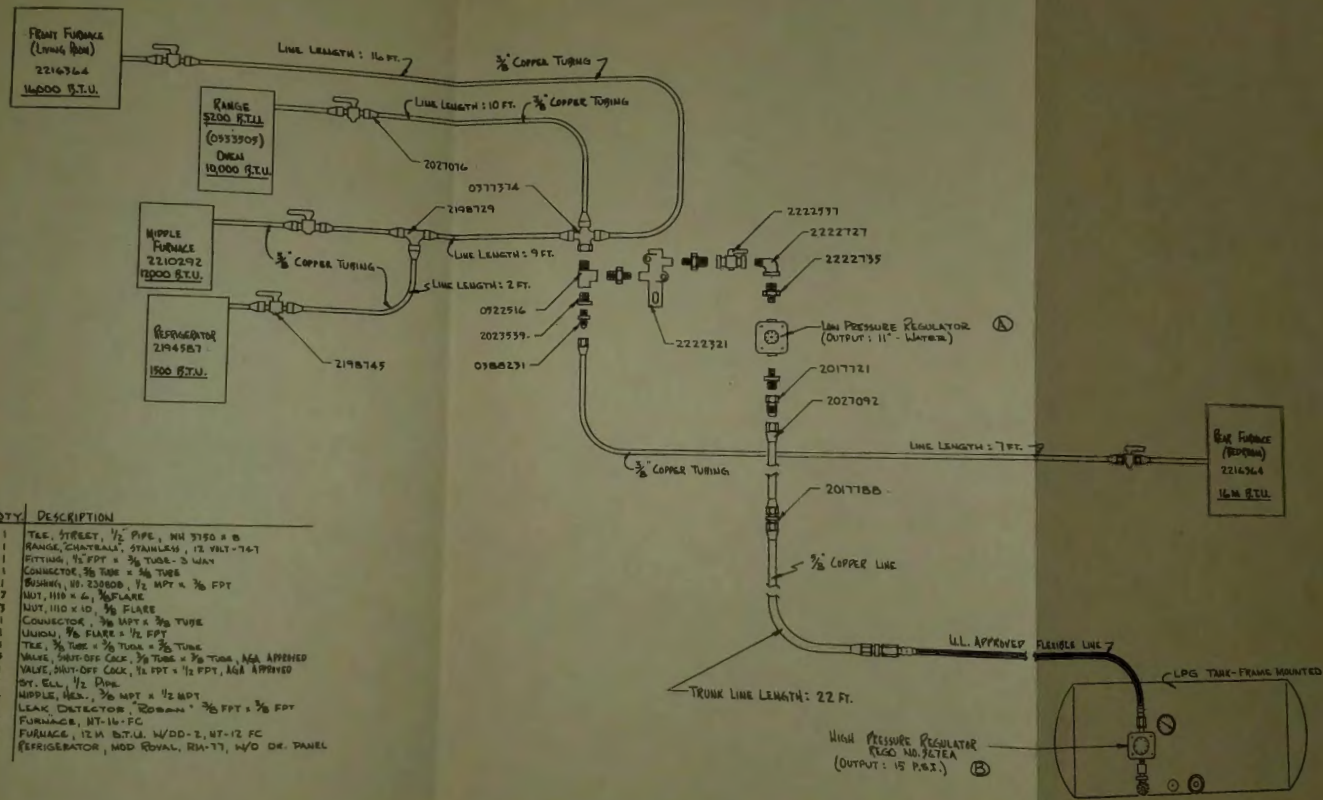 FRONT FURNACE
(LIVING ROOM)
2216364
16,000 B.T.U.
LINE LENGTH: 16 FT.
3/8" COPPER TUBING
RANGE
5200 B.T.U.
(0333505)
OVEN
10,000 B.T.U.
LINE LENGTH: 10 FT.
3/8" COPPER TUBING
2027076
0377374
2198729
MIDDLE
FURNACE
2210292
12,000 B.T.U.
3/8" COPPER TUBING
LINE LENGTH: 9 FT.
LINE LENGTH: 2 FT.
REFRIGERATOR
2194587
1500 B.T.U.
2198745
0322516
2023539
0388231
2222321
2222537
2222727
2222735
LOW PRESSURE REGULATOR
(OUTPUT: 11" - WATER)
A
2017721
2027092
LINE LENGTH: 7 FT.
3/8" COPPER TUBING
REAR FURNACE
(BEDROOM)
2216364
16 M B.T.U.
2017788
5/8" COPPER LINE
U.L. APPROVED FLEXIBLE LINE
TRUNK LINE LENGTH: 22 FT.
LPG TANK-FRAME MOUNTED
HIGH PRESSURE REGULATOR
REGO NO. 567EA
(OUTPUT: 15 P.S.I.)
B
QTY. DESCRIPTION
1 TEE, STREET, 1/2" PIPE, WH 3750 x 8
1 RANGE, "CHATEAU", STAINLESS, 12 VOLT-747
1 FITTING, 1/2" FPT x 3/8 TUBE - 3 WAY
1 CONNECTOR, 5/8 TUBE x 5/8 TUBE
1 BUSHING, NO. 230808, 1/2 MPT x 3/8 FPT
7 NUT, 1110 x 6, 3/8 FLARE
3 NUT, 1110 x 10, 5/8 FLARE
CONNECTOR, 3/8 MPT x 3/8 TUBE
UNION, 5/8 FLARE x 1/2 FPT
TEE, 3/8 TUBE x 3/8 TUBE x 3/8 TUBE
VALVE, SHUT-OFF COCK, 3/8 TUBE x 3/8 TUBE, AGA APPROVED
VALVE, SHUT-OFF COCK, 1/2 FPT x 1/2 FPT, AGA APPROVED
ST. ELL, 1/2 PIPE
NIPPLE, HEX., 3/8 MPT x 1/2 MPT
LEAK DETECTOR, "ROBAN" 3/8 FPT x 3/8 FPT
FURNACE, NT-16-FC
FURNACE, 12 M B.T.U. W/DD-2, NT-12 FC
REFRIGERATOR, MOD ROYAL, RM-77, W/O DR. PANEL